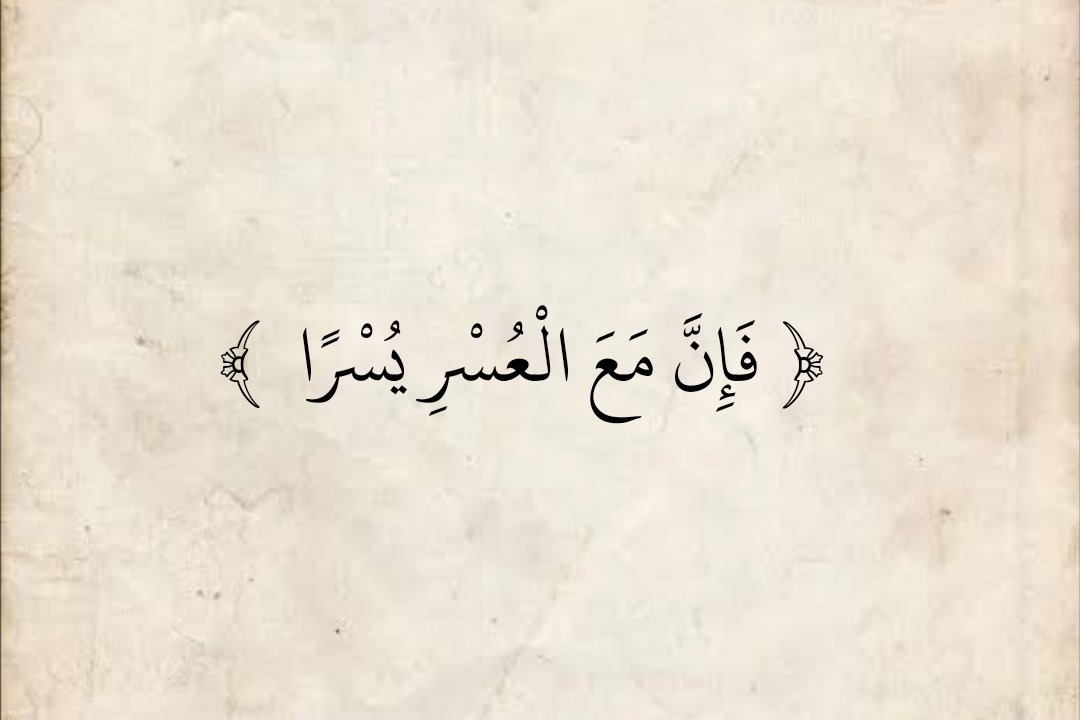 ﴿ فَإِنَّ مَعَ الْعُسْرِ يُسْرًا ﴾